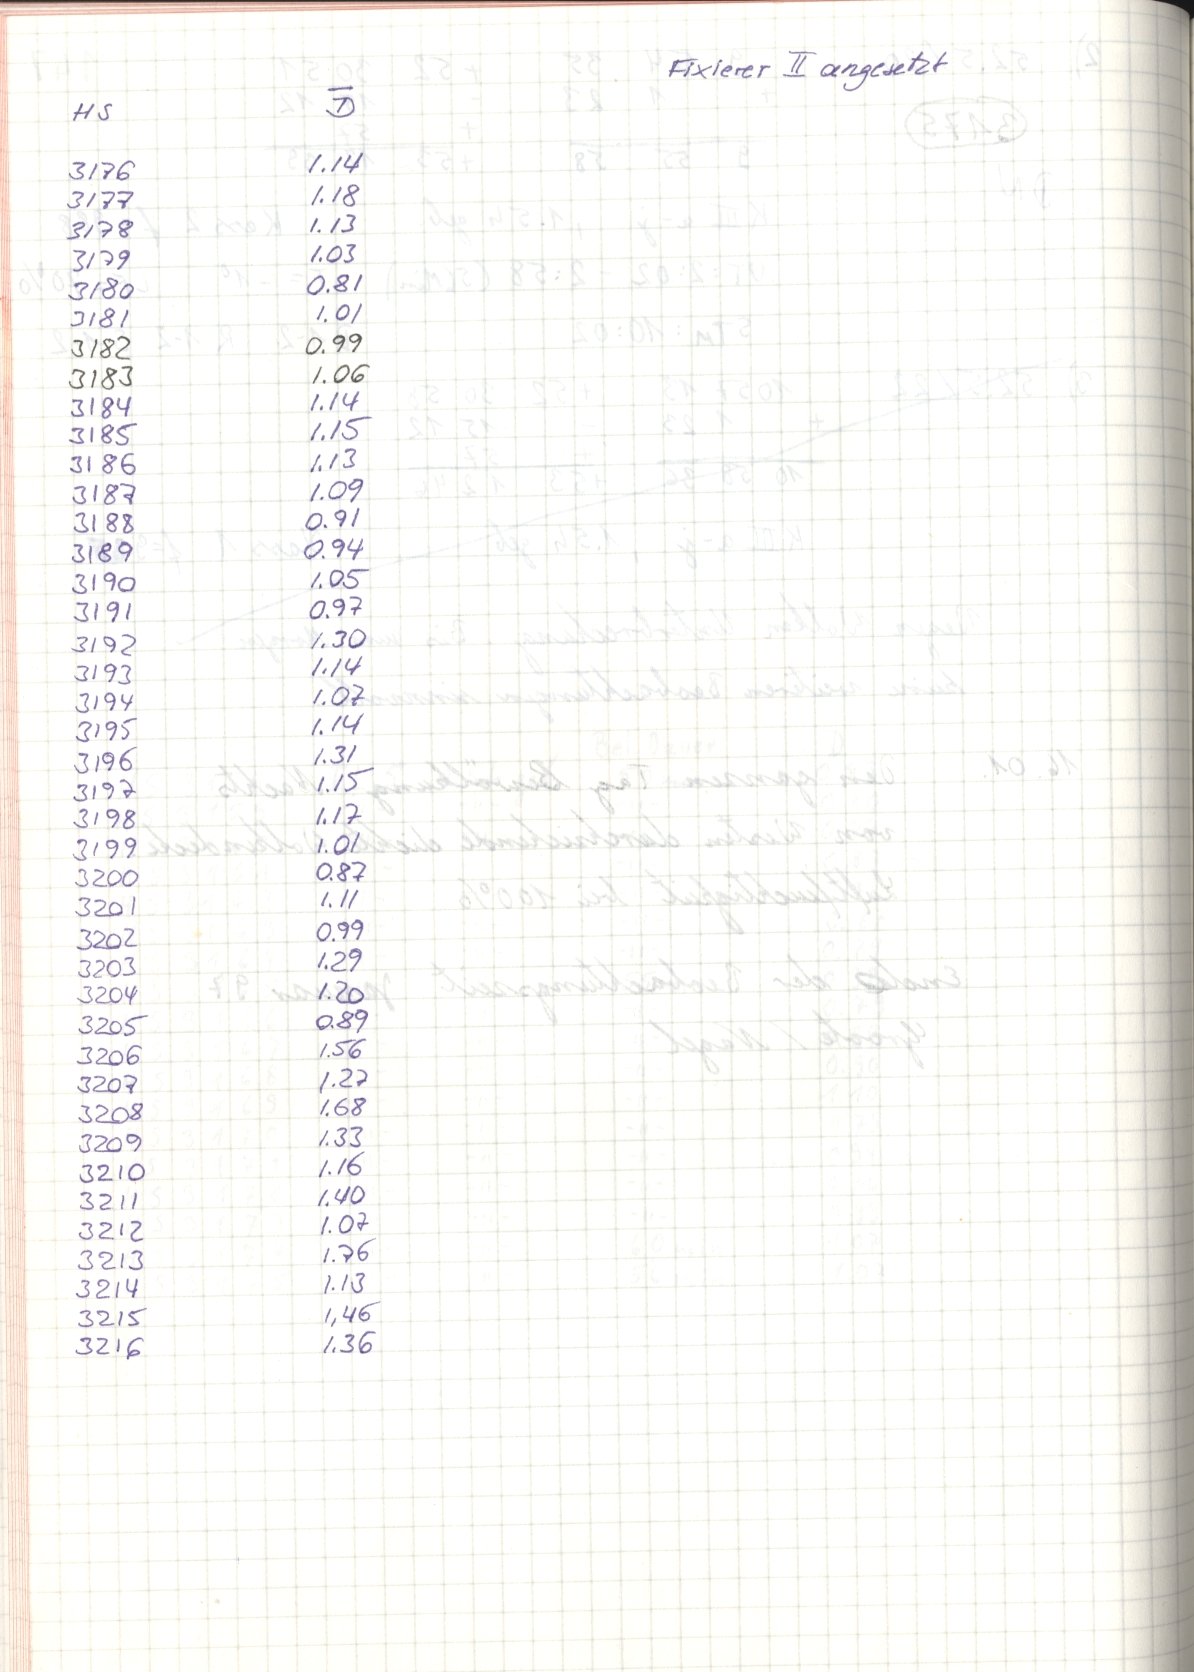 Fixierer II angesetzt
HS D̅
3176 1.14
3177 1.18
3178 1.13
3179 1.03
3180 0.81
3181 1.01
3182 0.99
3183 1.06
3184 1.14
3185 1.15
3186 1.13
3187 1.09
3188 0.91
3189 0.94
3190 1.05
3191 0.97
3192 1.30
3193 1.14
3194 1.07
3195 1.14
3196 1.31
3197 1.15
3198 1.17
3199 1.01
3200 0.87
3201 1.11
3202 0.99
3203 1.29
3204 1.20
3205 0.89
3206 1.56
3207 1.27
3208 1.68
3209 1.33
3210 1.16
3211 1.40
3212 1.07
3213 1.76
3214 1.13
3215 1,46
3216 1.36